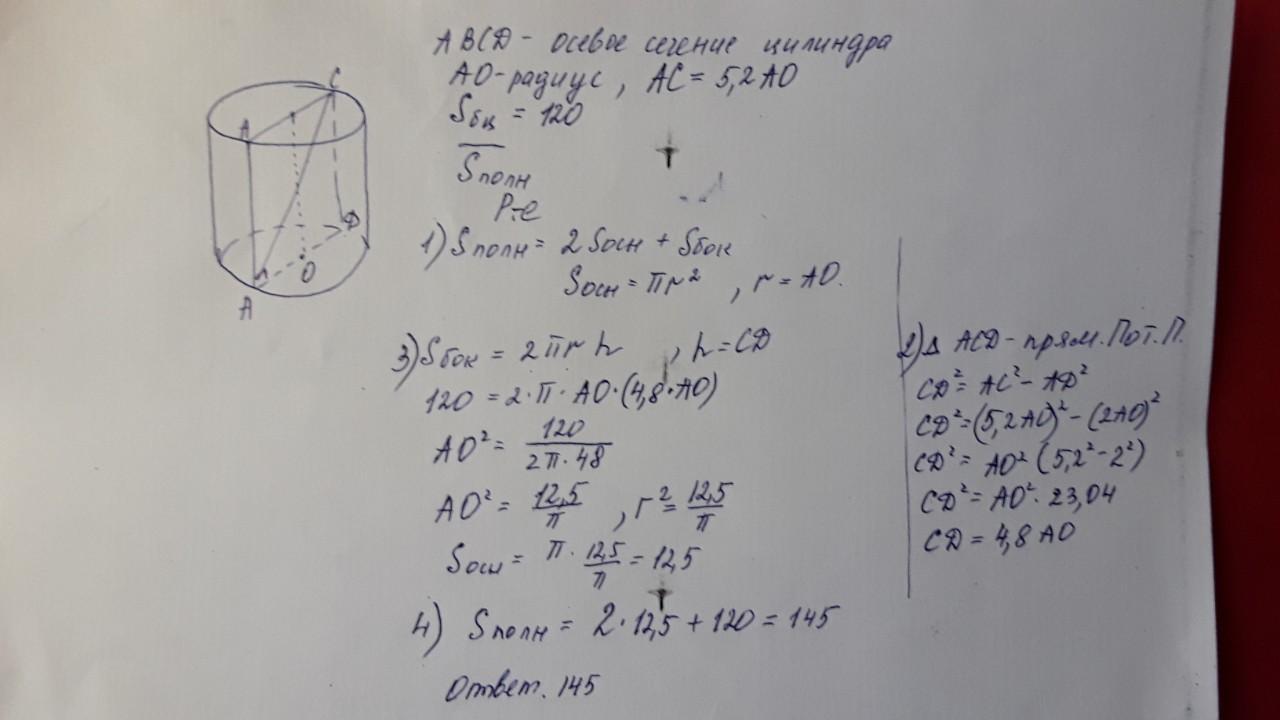 ABCD - осевое сечение цилиндра
AO - радиус, AC = 5,2 AO
Sбц = 120
Sполн
Р-е
1) Sполн = 2 Sосн + Sбок
Sосн = πr², r = AO.
3) Sбок = 2πr h, h = CD
120 = 2·π·AO·(4,8·AO)
AO² = 120 / 2π·48
AO² = 12,5 / π, r² = 12,5 / π
Sосн = π · 12,5 / π = 12,5
4) Sполн = 2·12,5 + 120 = 145
Ответ. 145
2) Δ ACD - прям. По т. П.
CD² = AC² - AD²
CD² = (5,2AO)² - (2AO)²
CD² = AO² (5,2² - 2²)
CD² = AO² · 23,04
CD = 4,8 AO
C
A
D
O
A